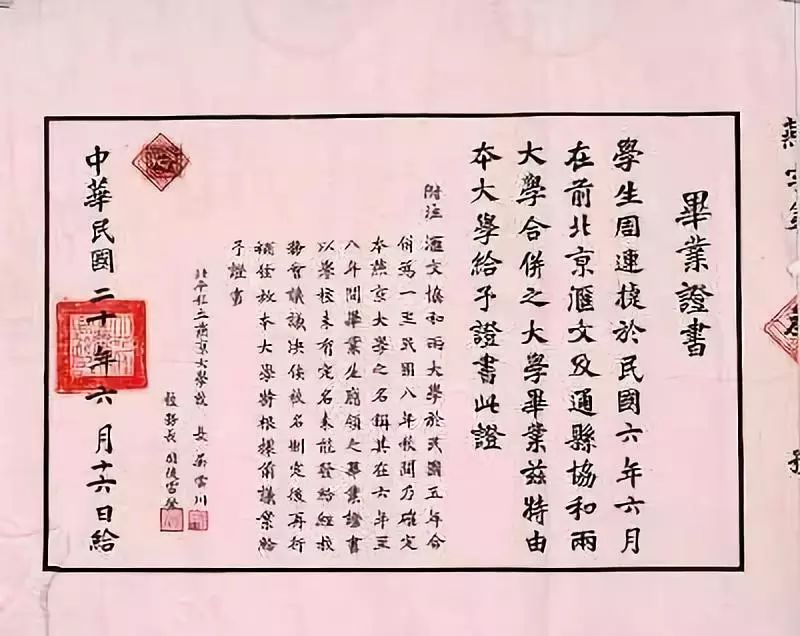 畢業證書
學生周連捷於民國六年六月
在前北京滙文及通縣協和兩
大學合併之大學畢業茲特由
本大學給予證書此證
附注 滙文協和兩大學於民國五年合
併為一至民國八年秋間乃確定
本燕京大學之名稱其在六年至
八年間畢業生應領之畢業證書
以學校未有定名未能發給經教
務會議議決俟校名制定後再行
補發故本大學將根據前議案給
予證書
北平私立燕京大學校長吳雷川
校務長司徒雷登
中華民國二十年六月十六日給
燕字第
號